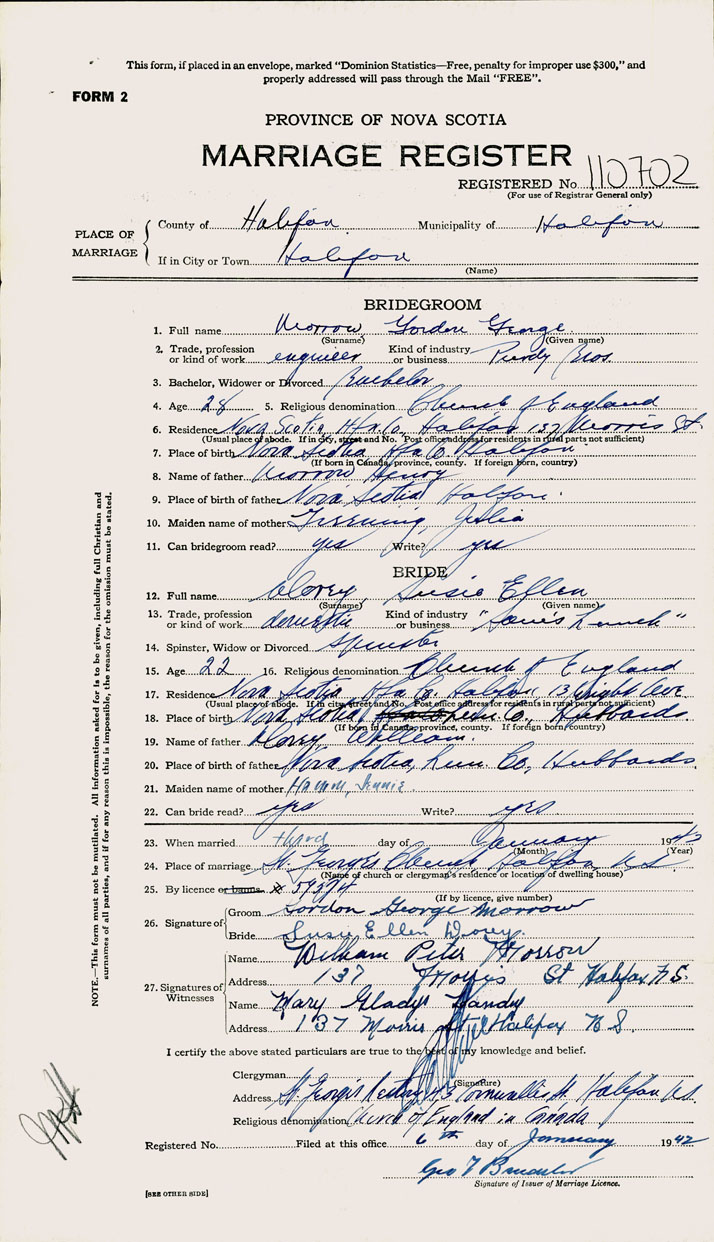 This form, if placed in an envelope, marked "Dominion Statistics—Free, penalty for improper use $300," and
properly addressed will pass through the Mail "FREE".
FORM 2
PROVINCE OF NOVA SCOTIA
MARRIAGE REGISTER
REGISTERED No. 110702
(For use of Registrar General only)
PLACE OF MARRIAGE
County of Halifax Municipality of Halifax
If in City or Town Halifax
(Name)
BRIDEGROOM
1. Full name Morrow Gordon George
(Surname) (Given name)
2. Trade, profession or kind of work engineer Kind of industry or business Purdy Bros
3. Bachelor, Widower or Divorced Bachelor
4. Age 28 5. Religious denomination Church of England
6. Residence Nova Scotia, Hfx Co. Halifax 137 Morris St
(Usual place of abode. If in city, street and No. Post office address for residents in rural parts not sufficient)
7. Place of birth Nova Scotia Hfx Co Halifax
(If born in Canada, province, county. If foreign born, country)
8. Name of father Morrow Henry
9. Place of birth of father Nova Scotia Halifax
10. Maiden name of mother Julia
11. Can bridegroom read? yes Write? yes
BRIDE
12. Full name Dorey, Susie Ellen
(Surname) (Given name)
13. Trade, profession or kind of work domestic Kind of industry or business Lunch"
14. Spinster, Widow or Divorced Spinster
15. Age 22 16. Religious denomination Church of England
17. Residence Nova Scotia, Hfx Co. Halifax, 13 Wright Ave
(Usual place of abode. If in city, street and No. Post office address for residents in rural parts not sufficient)
18. Place of birth Nova Scotia, Lun. Co., Hubbards
(If born in Canada, province, county. If foreign born, country)
19. Name of father Dorey William
20. Place of birth of father Nova Scotia, Lun. Co, Hubbards
21. Maiden name of mother Hamm, Jennie
22. Can bride read? yes Write? yes
23. When married third day of January 1942
(Month) (Year)
24. Place of marriage St. George's Church, Halifax N.S.
(Name of church or clergyman's residence or location of dwelling house)
25. By licence or banns #
(If by licence, give number)
26. Signature of
Groom Gordon George Morrow
Bride Susie Ellen Dorey
27. Signatures of Witnesses
Name William Peter Morrow
Address 137 Morris St Halifax N.S.
Name Mary Gladys Handy
Address 137 Morris St Halifax N.S.
I certify the above stated particulars are true to the best of my knowledge and belief.
Clergyman
(Signature)
Address St. George's Rectory Cornwallis St. Halifax N.S.
Religious denomination Church of England in Canada
Registered No. Filed at this office 6th day of January 1942
Signature of Issuer of Marriage Licence.
[SEE OTHER SIDE]
NOTE.—This form must not be mutilated. All information asked for is to be given, including full Christian and
surnames of all parties, and if for any reason this is impossible, the reason for the omission must be stated.